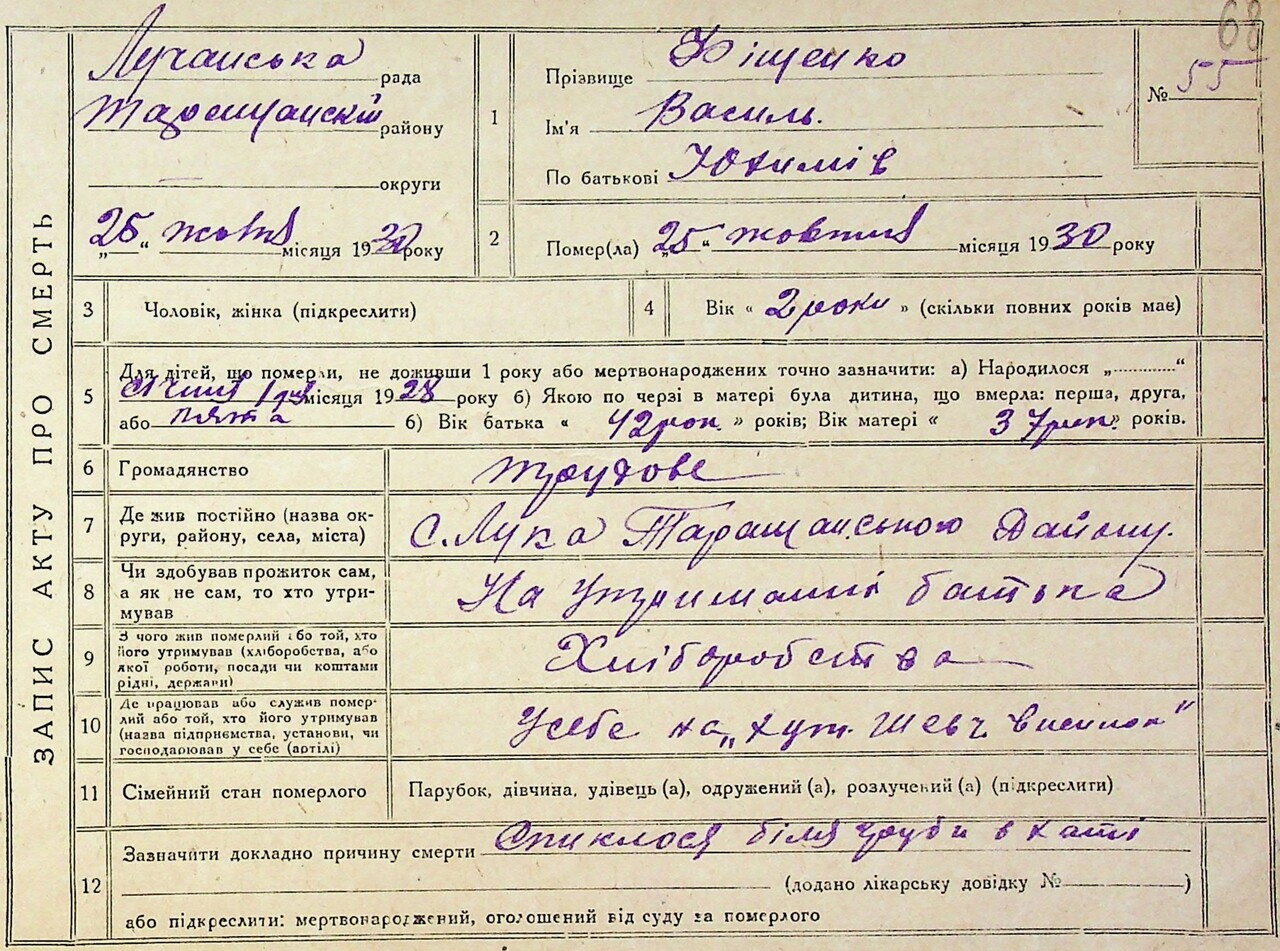 68
ЗАПИС АКТУ ПРО СМЕРТЬ
Лучанська рада
Таращанський району
округи
„25“ жовтня місяця 1930 року
1
Прізвище Фіщенко
Ім'я Василь.
По батькові Юхимів
№ 55
2
Помер(ла) „25“ жовтня місяця 1930 року
3
Чоловік, жінка (підкреслити)
4
Вік « 2 роки » (скільки повних років має)
5
Для дітей, що померли, не доживши 1 року або мертвонароджених точно зазначити: а) Народилося „............“
Січня 1 дня місяця 1928 року б) Якою по черзі в матері була дитина, що вмерла: перша, друга,
або пята б) Вік батька « 42 рок. » років; Вік матері « 37 рок. » років.
6
Громадянство
трудове
7
Де жив постійно (назва ок-
руги, району, села, міста)
с. Лука Таращанського Району.
8
Чи здобував прожиток сам,
а як не сам, то хто утри-
мував
На утриманні батька
9
З чого жив померлий або той, хто
його утримував (хліборобства, або
якої роботи, посади чи коштами
рідні, держави)
Хліборобства
10
Де працював або служив помер-
лий або той, хто його утримував
(назва підприємства, установи, чи
господарював у себе (артілі)
Усебе на „хут. Шевч. виселок“
11
Сімейний стан померлого
Парубок, дівчина, удівець (а), одружений (а), розлучений (а) (підкреслити)
12
Зазначити докладно причину смерти Спиклося біля груби в хаті
(додано лікарську довідку № )
або підкреслити: мертвонароджений, оголошений від суду за померлого